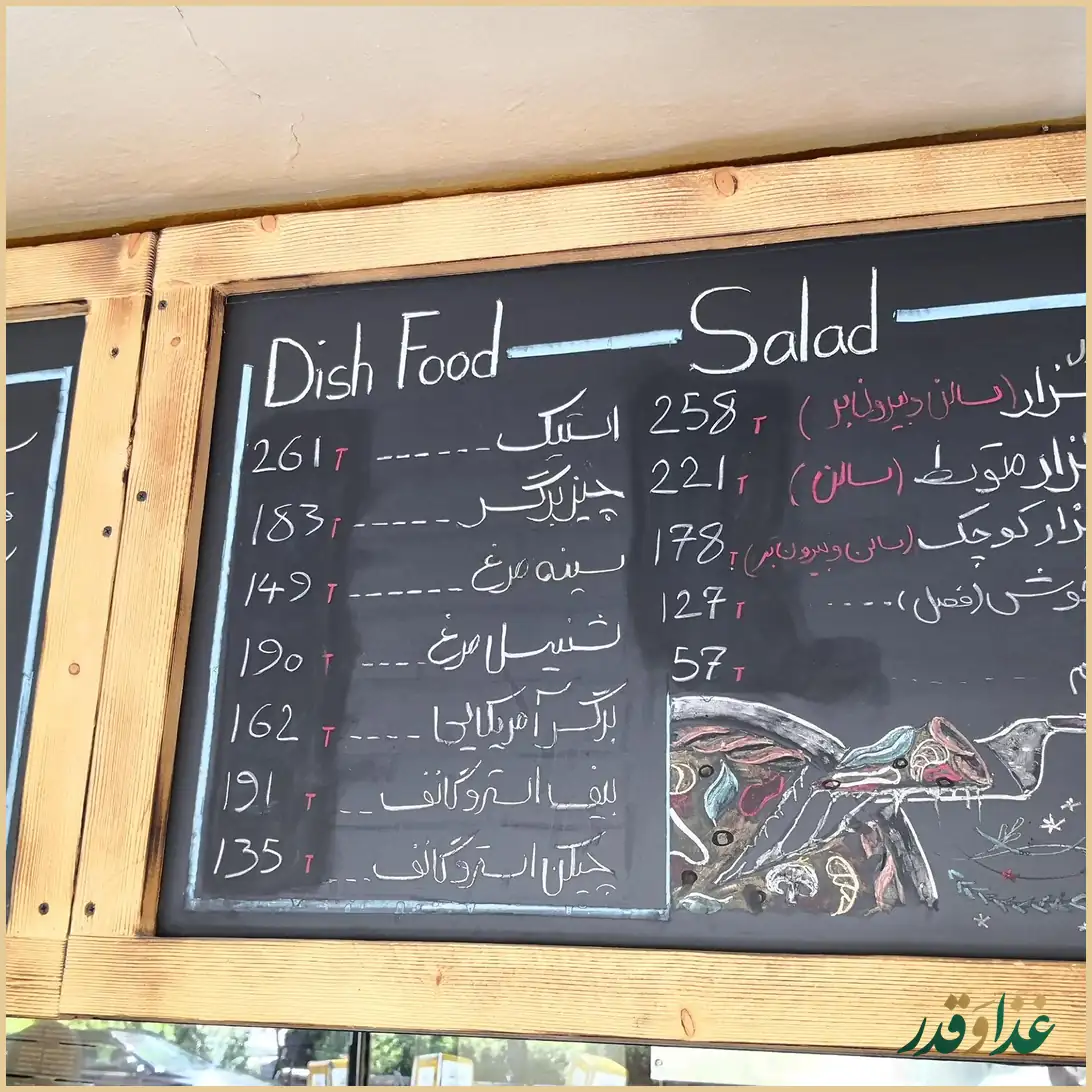 Dish Food
استیک ------ 261 T
چیزبرگر ----- 183 T
سینه مرغ ------ 149 T
شنیسل مرغ ---- 190 T
برگر آمریکایی ---- 162 T
بیف استروگانف -- 191 T
چیکن استروگانف --- 135 T
Salad
(سالن و بیرونبر) 258 T
متوسط (سالن) 221 T
کوچک (سالن و بیرونبر) 178 T
(فصل) ---- 127 T
57 T
غذا و قدر